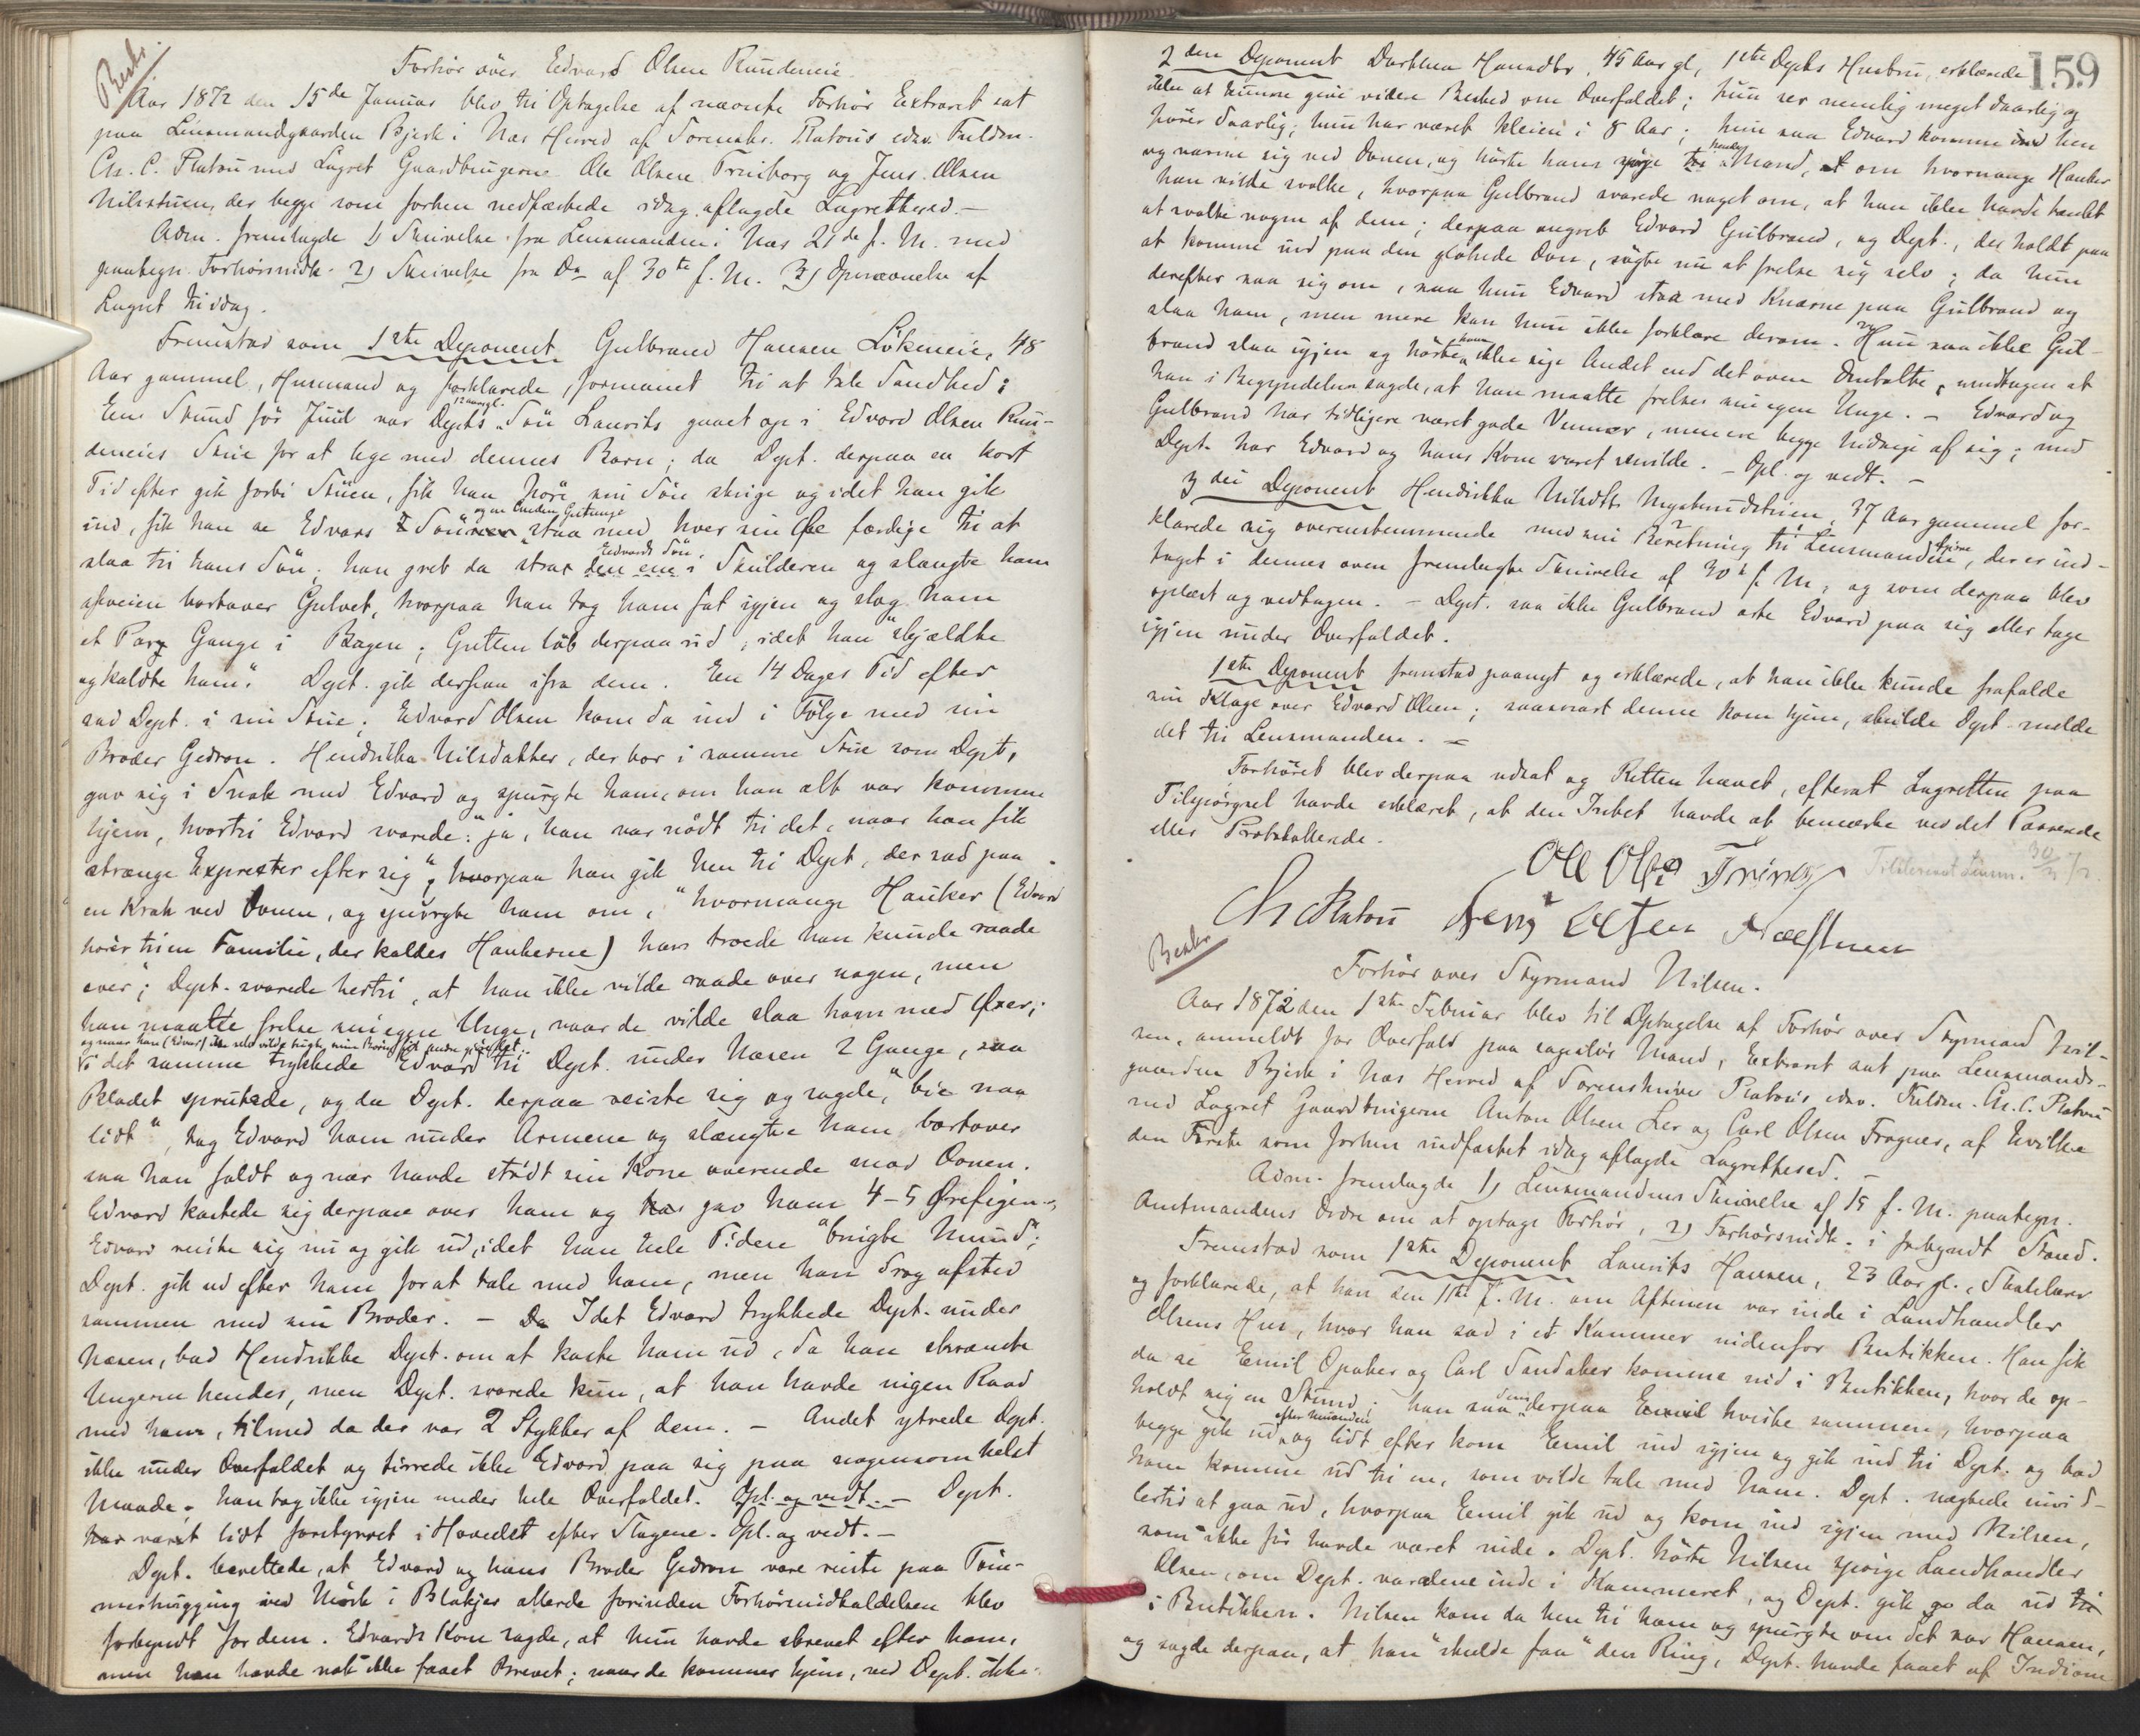 Besk.
Forhör över Edvard Olsen Rundeneie.
Aar 1872 den 15de Januar blev til Optagelse af nævnte Forhör Extraret sat
paa Lensmandgaarden Bjerk i Næs Herred af Sorenskr. Platous edsv. Fuldm.
Chr. C. Platou med Lagret Gaardbrugerne Ole Olsen Frinborg og Jens Olsen
Nilsstuen, der begge som forhen nedfæstede idag aflagde Lagretteed. -
Adm. fremlagde 1) Skrivelse fra Lensmanden i Næs 21de f. M. med
paategn. Forhörsindk. 2) Skrivelse fra Do af 30te f. M. 3) Opnævnelse af
Lagret til idag.
Fremstod som 1ste Deponent Gulbrand Hansen Lökeneie, 48
Aar gammel, Husmand og forklarede, formanet til at tale Sandhed:
12 aarsgl.
Een Stund för Juul var Depts Sön Laurits gaaet op i Edvard Olsen Run-
deneies Stue for at lege med dennes Barn; da Dept. derpaa en kort
Tid efter gik forbi Stuen, fik han höre sin Sön skrige og idet han gik
og en anden Gutunge
ind, fik han se Edvars Sön staa med hver sin Öxe færdige til at
Edvards Sön.
slaa til hans Sön; han greb da strax den ene i Skulderen og slængte ham
afveien bortover Gulvet, hvorpaa han tog ham fat igjen og slog ham
et Par Gange i Bagen; Gutten löb derpaa ud, idet han "skjældte
og kaldte ham". Dept. gik derpaa ifra dem. En 14 Dages Tid efter
sad Dept. i sin Stue; Edvard Olsen kom da ind i Fölge med sin
Broder Gedron. Hendrikka Nilsdatter, der bor i samme Stue som Dept,
gav sig i Snak med Edvard og spurgte ham, om han alt var kommen
hjem, hvortil Edvard svarede: "ja, han var nödt til det, naar han fik
strænge Expresser efter sig", hvorpaa han gik hen til Dept, der sad paa
en Krak ved Ovnen, og spurgte ham om, "hvormange Hauker (Edvard
hörer til en Familie, der kaldes Haukerne) han troede han kunde raade
over"; Dept. svarede hertil, at han ikke vilde raade over nogen, men
han maatte frelse sin egen Unge, naar de vilde slaa ham med Öxer;
i det samme trykkede Edvard til Dept. under Næsen 2 Gange, saa
Blodet sprutede, og da Dept. derpaa reiste sig og sagde, "bie naa
lidt", tog Edvard ham under Armene og slængte ham bortover
saa han faldt og nær havde stödt sin Kone overende mod Ovnen.
Edvard kastede sig derpaa over ham og gav ham 4-5 Örefigen;
Edvard reiste sig nu og gik ud, idet han hele Tiden "brugte Mund";
Dept. gik ud efter ham for at tale med ham, men han drog afsted
sammen med sin Broder. - Idet Edvard trykkede Dept. under
Næsen, bad Hendrikke Dept. om at kaste ham ud, da han skræmte
Ungerne hendes, men Dept. svarede kun, at han havde ingen Raad
med ham, tilmed da der var 2 Stykker af dem. - Andet ytrede Dept.
ikke under Overfaldet og tirrede ikke Edvard paa sig paa nogensomhelst
Maade; han tog ikke igjen under hele Overfaldet. Opl. og vedt. - Dept.
har været lidt forstyrret i Hovedet efter Slagene. Opl. og vedt. -
Dept. berettede, at Edvard og hans Broder Gedron vare reiste paa Töm-
merhugging ved Mörk i Blakjer allerede forinden Forhörsindkaldelsen blev
forkyndt for dem. Edvards Kone sagde, at hun havde skrevet efter ham,
men han havde nok ikke faaet Brevet; naar de kommer hjem, ved Dept. ikke.
159
2den Deponent Dorthea Hansdtr, 45 Aar gl, 1ste Depts Hustru, erklærede
ikke at kunne give videre Besked om Overfaldet; hun ser nemlig meget daarlig og
hörer daarlig; hun har været kleien i 8 Aar; hun saa Edvard komme ind hen
hendes
og varme sig ved Ovnen, og hörte ham spörge Mand, om hvormange Hauker
han vilde svolke, hvorpaa Gulbrand svarede noget om, at han ikke havde tænkt
at svolke nogen af dem; derpaa angreb Edvard Gulbrand, og Dept., der holdt paa
at komme ind paa den glohede Ovn, sögte nu at frelse sig selv; da hun
derefter saa sig om, saa hun Edvard staa med Knærne paa Gulbrand og
slaa ham, men mere kan hun ikke forklare derom. Hun saa ikke Gul-
ham
brand slaa igjen og hörte ikke sige Andet end det oven Omtalte, undtagen at
han i Begyndelsen sagde, at han maatte frelse sin egen Unge. - Edvard og
Gulbrand har tidligere været gode Venner, men ere begge hidsige af sig; med
Dept. har Edvard og hans Kone været uvilde. - Opl. og vedt. -
3die Deponent Hendrikka Nilsdtr. Nystundstuen, 37 Aar gammel for-
klarede sig overenstemmende med sin Beretning til Lensmanden, der er ind-
taget i dennes oven fremlagte Skrivelse af 30te f. M., og som derpaa blev
oplæst og vedtagen. - Dept. saa ikke Gulbrand erte Edvard paa sig eller tage
igjen under Overfaldet.
1ste Deponent fremstod paanyt og erklærede, at han ikke kunde frafalde
sin Klage over Edvard Olsen; saasnart denne kom hjem, skulde Dept. melde
det til Lensmanden. -
Forhöret blev derpaa udsat og Retten hævet, efterat Lagretten paa
Tilspörgsel havde erklæret, at den Intet havde at bemærke ved det Passerede
eller Protokollerede.
Ole Olsen Frinborg
Chr Platou Jens Olsen
Besk.
Forhör over Styrmand Nilsen.
Aar 1872 den 1ste Februar blev til Optagelse af Forhör over Styrmand Nil-
sen, anmeldt for Overfald paa sageslös Mand, Extraret sat paa Lensmands-
gaarden Bjerk i Næs Herred af Sorenskriver Platous edsv. Fuldm. Chr. C. Platou
med Lagret Gaardbrugerne Anton Olsen Ler og Carl Olsen Frogner, af hvilke
den Förste som forhen nedfæstet idag aflagde Lagretteseed. -
Adm. fremlagde 1) Lensmandens Skrivelse af 15 f. M. paategn.
Amtmandens Ordre om at optage Forhör, 2) Forhörsindk. i forkyndt Stand.
Fremstod som 1ste Deponent Laurits Hansen, 23 Aar gl., Skolelærer
og forklarede, at han den 11te f. M. om Aftenen var inde i Landhandler
Olsens Hus, hvor han sad i et Kammer nidenfor Butikken. Han fik
da se Emil Opaker og Carl Sandaker komme ind i Butikken, hvor de op-
dem
holdt sig en Stund; han saa derpaa hviske sammen, hvorpaa
efter hinanden
begge gik ud, og lidt efter kom Emil ind igjen og gik ind til Dept. og bad
ham komme ud til en, som vilde tale med ham. Dept. nægtede imid-
lertid at gaa ud, hvorpaa Emil gik ud og kom ind igjen med Nilsen,
som ikke för havde været inde. Dept. hörte Nilsen spörge Landhandler
Olsen, om Dept. var alene inde i Kammeret, og Dept. gik da ud
i Butikken. Nilsen kom da hen til ham og spurgte om det var Hansen,
og sagde derpaa, at han "skulde faa" den Ring, Dept. havde faaet af